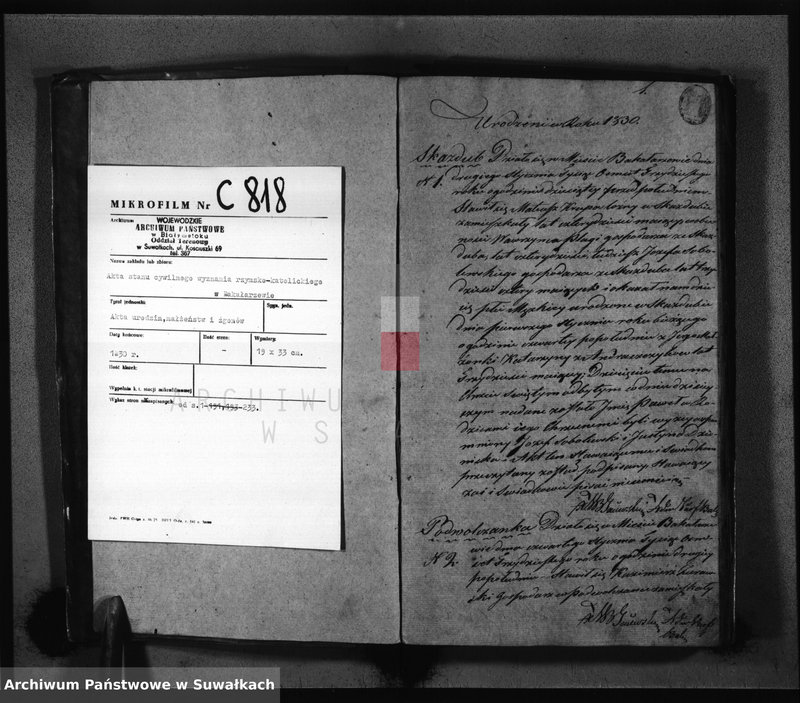 MIKROFILM Nr C 818
Archiwum
WOJEWÓDZKIE
ARCHIWUM PAŃSTWOWE
w Białymstoku
Oddział Terenowy
w Suwałkach, ul. Kościuszki 69
tel. 367
Nazwa zakładu lub zbioru:
Akta stanu cywilnego wyznania rzymsko-katolickiego
w Bakałarzewie
Tytuł jednostki:
Sygn. jedn.
Akta urodzin, małżeństw i zgonów
Daty końcowe:
1830 r.
Ilość stron:
-
Wymiary:
19 x 33 cm.
Ilość klatek:
Wypełnia k. t. stacji mikrofilmowej
Wykaz stron mikrofilmowanych:
od s. 1-191,193-233.
ARCHIWU
W S
1.
Urodzeni w Roku 1830.
Skazdub Działo się w Mieście Bakałarzewie dnia
N 1. drugiego Stycznia Tysiąc Osmset Trzydziestego
roku o godzinie dziesiątej przed południem
Stawił się Mateusz
zamieszkały lat czterdzieści mający w obec-
ności Wawrzyńca gospodarza ze Skaz-
duba, lat czterdzieści, tudzież Józefa Sobo-
lewskiego gospodarza ze Skazduba lat trzy-
dzieści cztery mających i okazał nam dzie-
cię płci Męzkiej urodzone w Skazdubie
dnia pierwszego Stycznia roku bieżącego
o godzinie czwartej po południu z Jego Mał-
żonki Katarzyny z lat
Trzydzieści mającej. Dziecięciu temu na
Chrzcie Świętym odbytym w dniu dzisiej-
szym nadane zostało Imię Paweł a Ro-
dzicami jego Chrzestnemi byli wyżej wspo-
mniony Józef Sobolewski i Justyna
Akt ten Stawającemu i Świadkom
przeczytany został, podpisany. Stawający
zaś i Świadkowie pisać nie umieją
Podwolczanka Działo się w Mieście Bakałarze-
N 2. wie dnia czwartego Stycznia Tysiąc Osm-
set Trzydziestego roku o godzinie drugiej
po południu Stawił się Kazimierz
gospodarz w Podwolczance zamieszkały
Archiwum Państwowe w Suwałkach